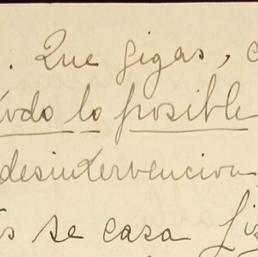 . Que gigas, c
todo lo posible
desintervencion
s se casa Lis